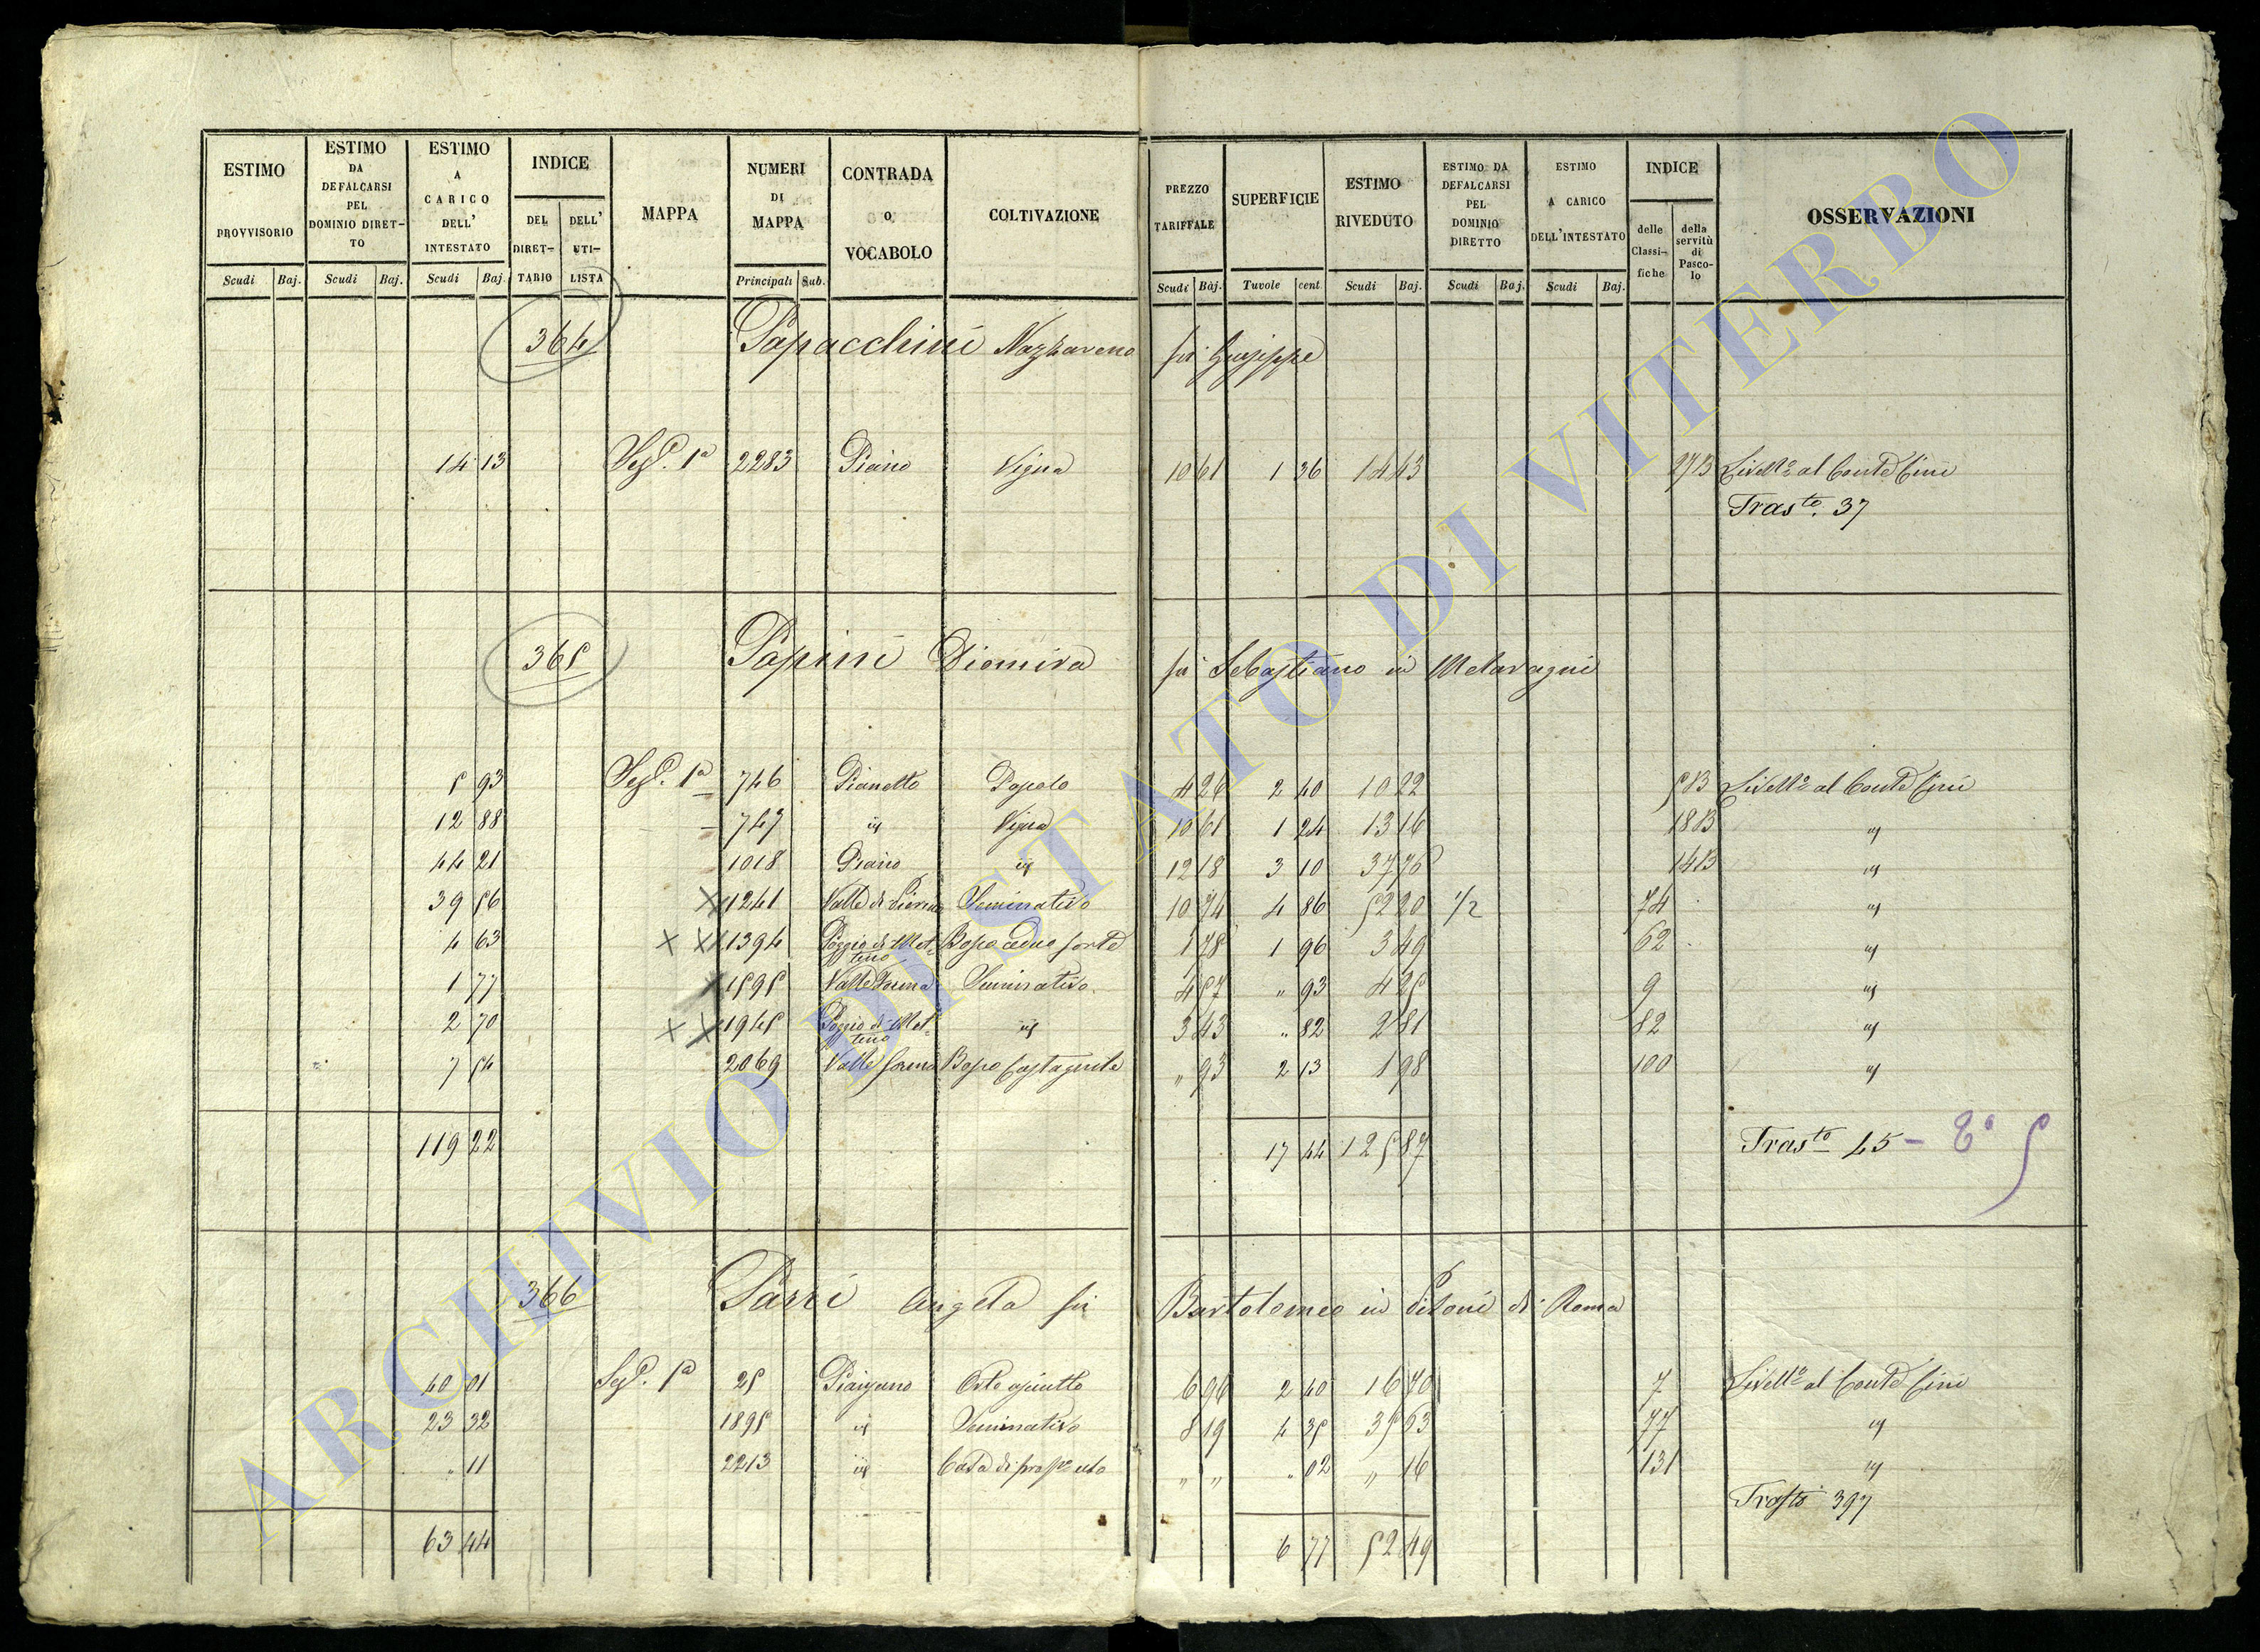 ESTIMO PROVVISORIO Scudi Baj.
ESTIMO DA DEFALCARSI PEL DOMINIO DIRET-TO Scudi Baj.
ESTIMO A CARICO DELL' INTESTATO Scudi Baj.
INDICE DEL DIRET-TARIO DELL' UTI-LISTA
MAPPA
NUMERI DI MAPPA Principali Sub.
CONTRADA O VOCABOLO
COLTIVAZIONE
PREZZO TARIFFALE Scudi Baj.
SUPERFICIE Tavole cent.
ESTIMO RIVEDUTO Scudi Baj.
ESTIMO DA DEFALCARSI PEL DOMINIO DIRETTO Scudi Baj.
ESTIMO A CARICO DELL'INTESTATO Scudi Baj.
INDICE delle Classi-fiche della servitù di Pasco-lo
OSSERVAZIONI
364 Papacchini Nazzareno fu Giuseppe
14 13 Sez.e 1a 2283 Piano Vigna 10 61 1 36 14 43 27B Livell.o al Conte Cini
Tras.to 37
365 Papini Diomira fu Sebastiano in Metaragni
5 93 Sez.e 1a 746 Pianetto Popolo 4 26 2 40 10 22 5B Livell.o al Conte Cini
12 88 747 id Vigna 10 61 1 24 13 16 18B id
44 21 1018 Piano id 12 18 3 10 37 76 14B id
39 56 X 1241 Valle di Seminativo 10 74 4 86 52 20 1/2 74 id
4 63 X X 1394 Poggio di Mot-tino Bosco ceduo forte 1 78 1 96 3 49 62 id
1 77 X 1595 Valle Forma Seminativo 4 57 " 93 4 25 9 id
2 70 X X 1945 Poggio di Mot-tino id 3 43 " 82 2 81 82 id
7 54 2069 Valle forma Bosco Castagnile " 93 2 13 1 98 100 id
119 22 17 44 125 87 Tras.to 45 -
366 Parri Angela fu Bartolomeo in di Roma
40 01 Sez.e 1a 25 Piaigano Orto asciutto 6 96 2 40 16 70 7 Livell.o al Conte Cini
23 32 1895 id Seminativo 8 19 4 35 35 63 77 id
" 11 2213 id Casa di prop.o uso " " " 02 " 16 131 id
Trasto 397
63 44 6 77 52 49
ARCHIVIO DI STATO DI VITERBO